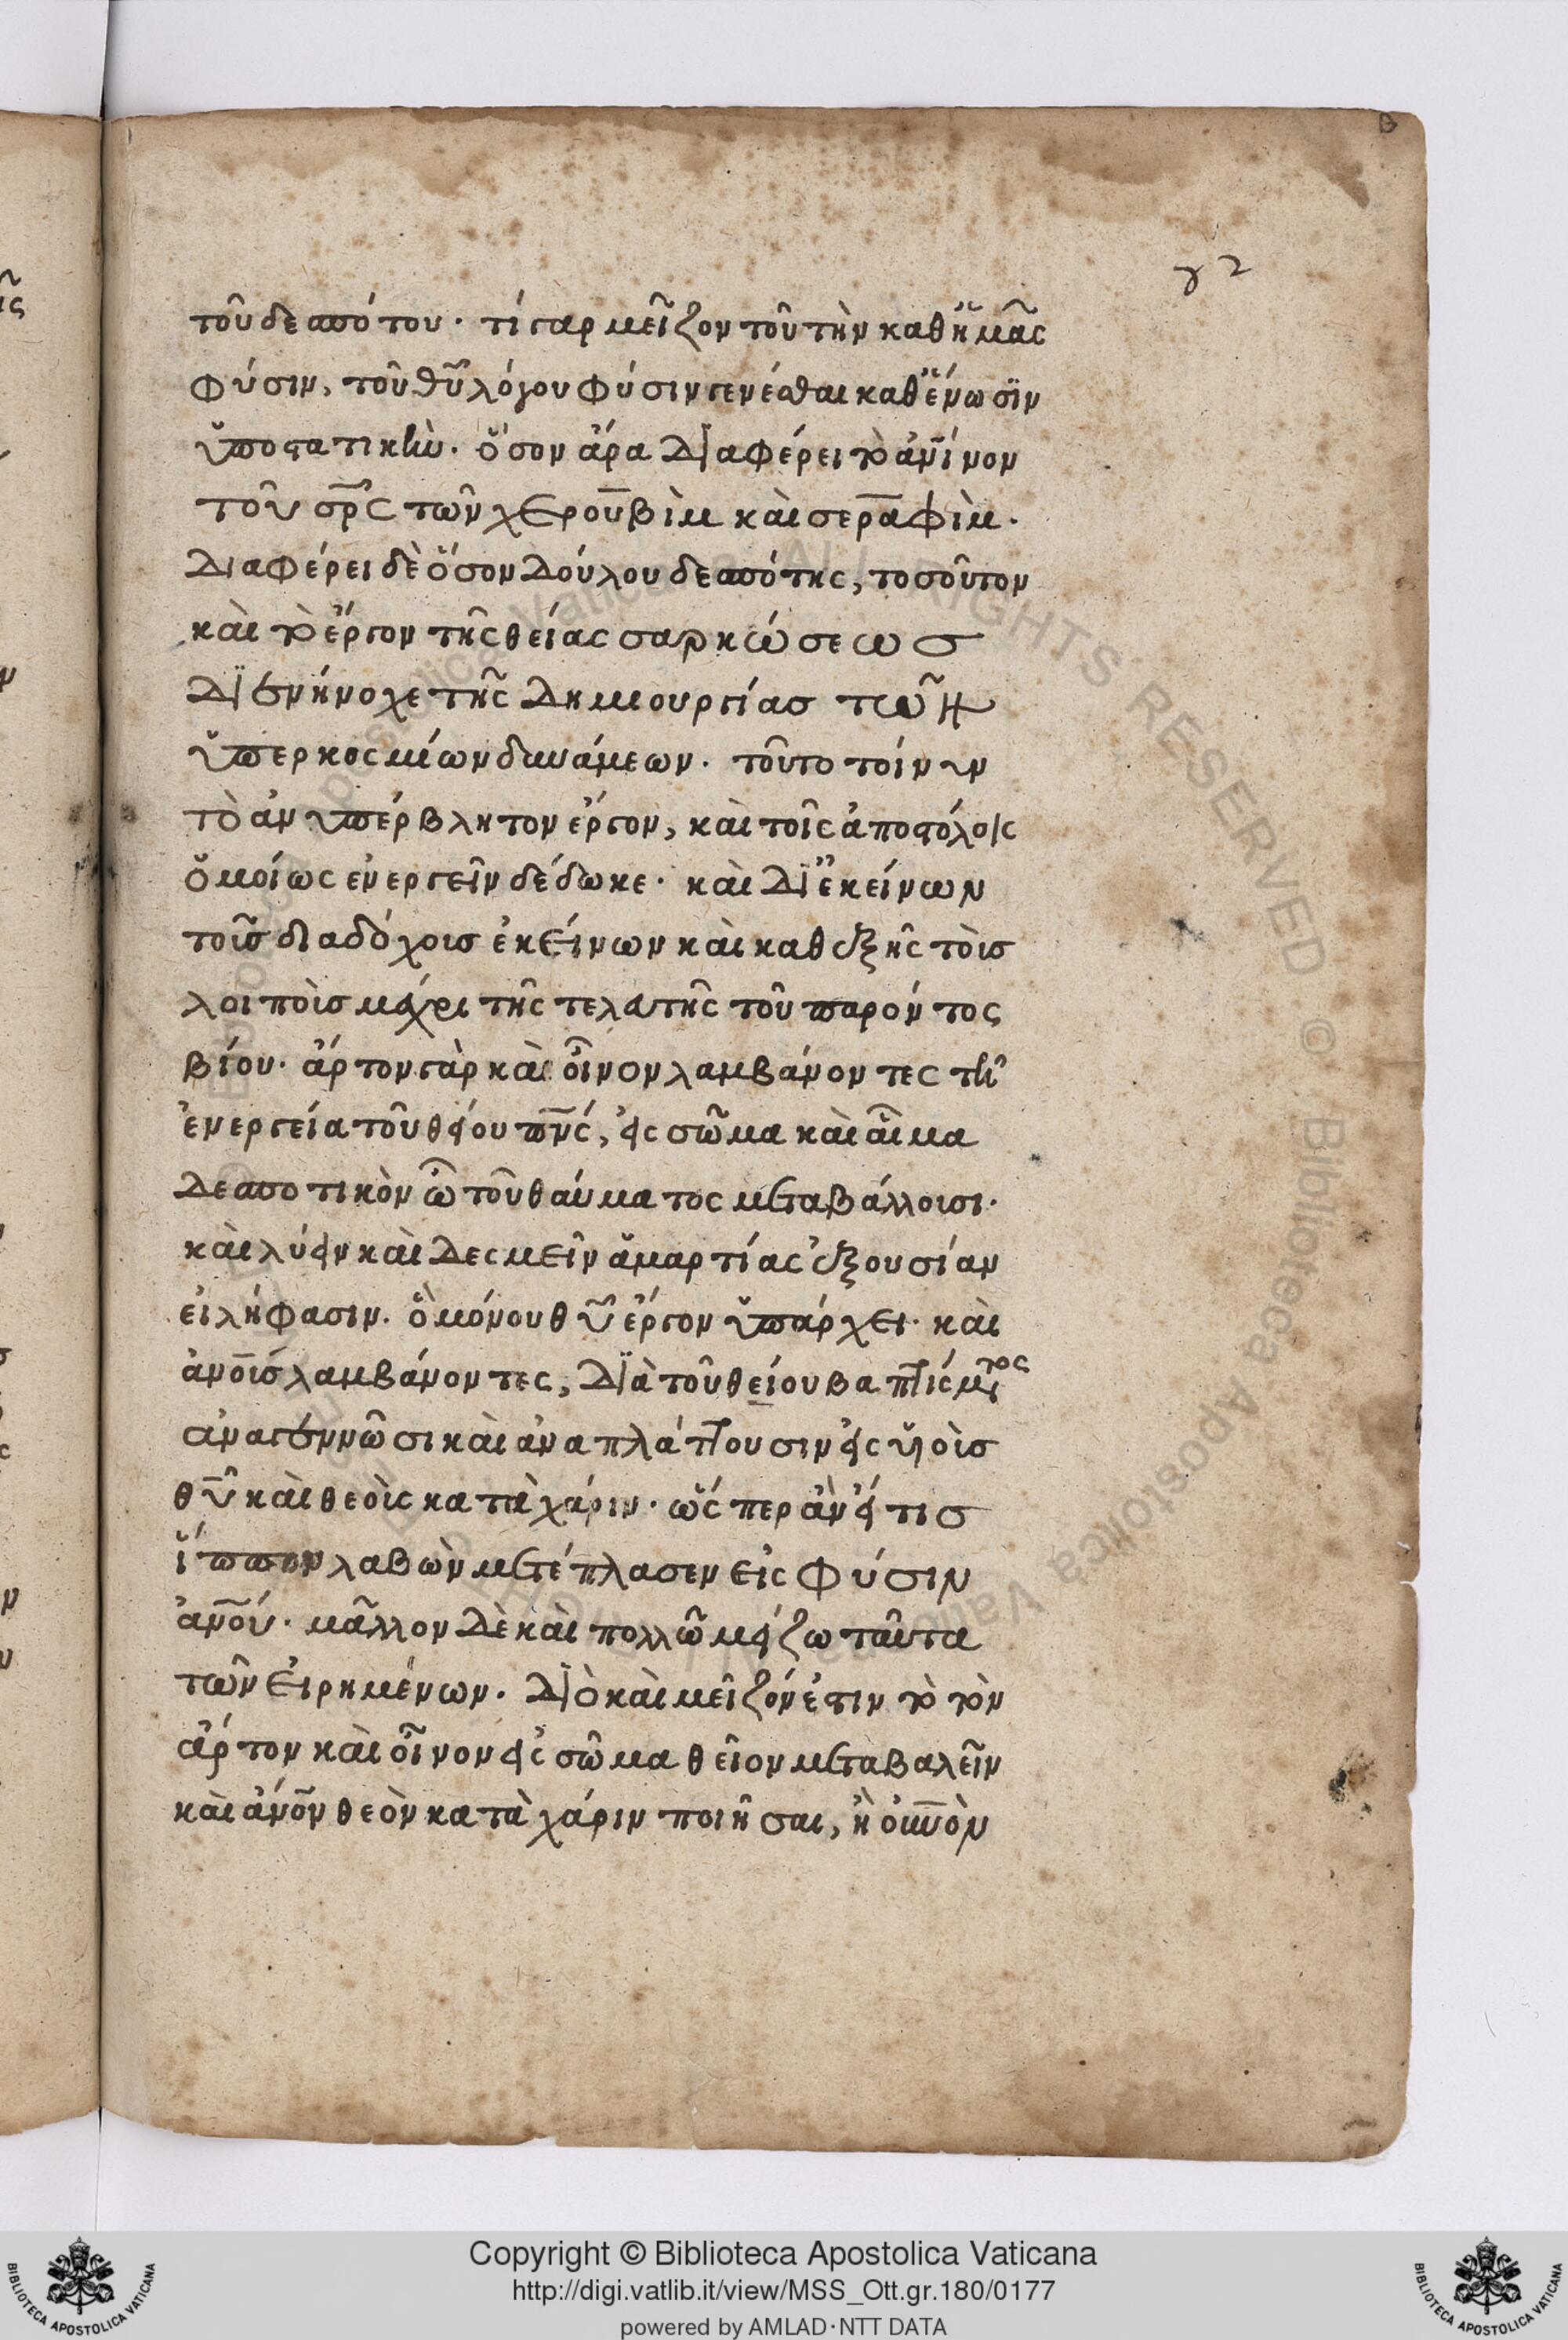 γ 2
τοῦ δεσπότου· τί γαρ μεῖζον τοῦ τὴν καθ ἡμᾶς
φύσιν, τοῦ θῦ λόγου φύσιν γενέσθαι καθ ἕνωσϊν
ὑποστατικήν. ὅσον ἄρα διαφέρει τὸ ἀνῖνον
τοῦ σρ̅ς τῶν χερουβὶμ καὶ σεραφὶμ.
διαφέρει δὲ ὅσον δούλου δεσπότης, τοσοῦτον
καὶ τὸ ἔργον τῆς θείας σαρκώσεως
διενήνοχε τῆς δημιουργίας τῶν
ὑπερκοσμίων δυνάμεων. τοῦτο τοίνυν
τὸ ἀνυπέρβλητον ἔργον, καὶ τοῖς ἀποστόλοις
ὁμοίως ἐνεργεῖν δέδωκε· καὶ δι ἐκείνων
τοῖς διαδόχοις ἐκείνων καὶ καθεξῆς τοὶς
λοιποὶς μέχρι τῆς τελευτῆς τοῦ παρόντος
βίου· ἄρτον γὰρ καὶ οἶνον λαμβάνοντες τῆ
ἐνεργεία τοῦ θείου πν̅ς, εἰς σῶμα καὶ αἷμα
δεσποτικὸν ὢ τοῦ θαύματος μεταβάλλουσι·
καὶ λύειν καὶ δεσμεῖν ἁμαρτίας ἐξουσίαν
εἰλήφασιν. ὃ μόνου θῦ ἔργον ὑπάρχει· καὶ
ἀνο̅ις λαμβάνοντες, διὰ τοῦ θείου βαπτίσμτος
αναγεννῶσι καὶ ἀναπλάττουσιν εἰς υἱοὶς
θῦ καὶ θεοὶς κατὰ χάριν· ὥσπερ ἂν εἴ τις
ἵππον λαβὼν μετέπλασεν εἰς φύσιν
ἀνο̅ύ· μᾶλλον δὲ καὶ πολλῶ μείζω ταῦτα
τῶν εἰρημένων. διὸ καὶ μεῖζόν ἐστιν τὸ τὸν
ἄρτον καὶ οἶνον εἰς σῶμα θεῖον μεταβαλεῖν
καὶ ἄνο̅ν θεὸν κατὰ χάριν ποιῆσαι, ἢ οὐνὸν
Copyright © Biblioteca Apostolica Vaticana
http://digi.vatlib.it/view/MSS_Ott.gr.180/0177
powered by AMLAD·NTT DATA